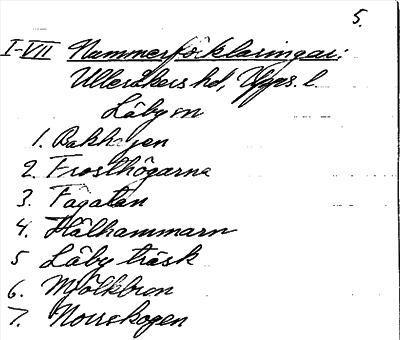 5.
I-VII Nummerförklaringar:
Ulleråkers hd, Upps. l.
Läby sn
1. Bakhagen
2. Frosthögarna
3. Fågatan
4. Hålhammarn
5 Läby träsk
6. Mjölkbron
7. Norrskogen